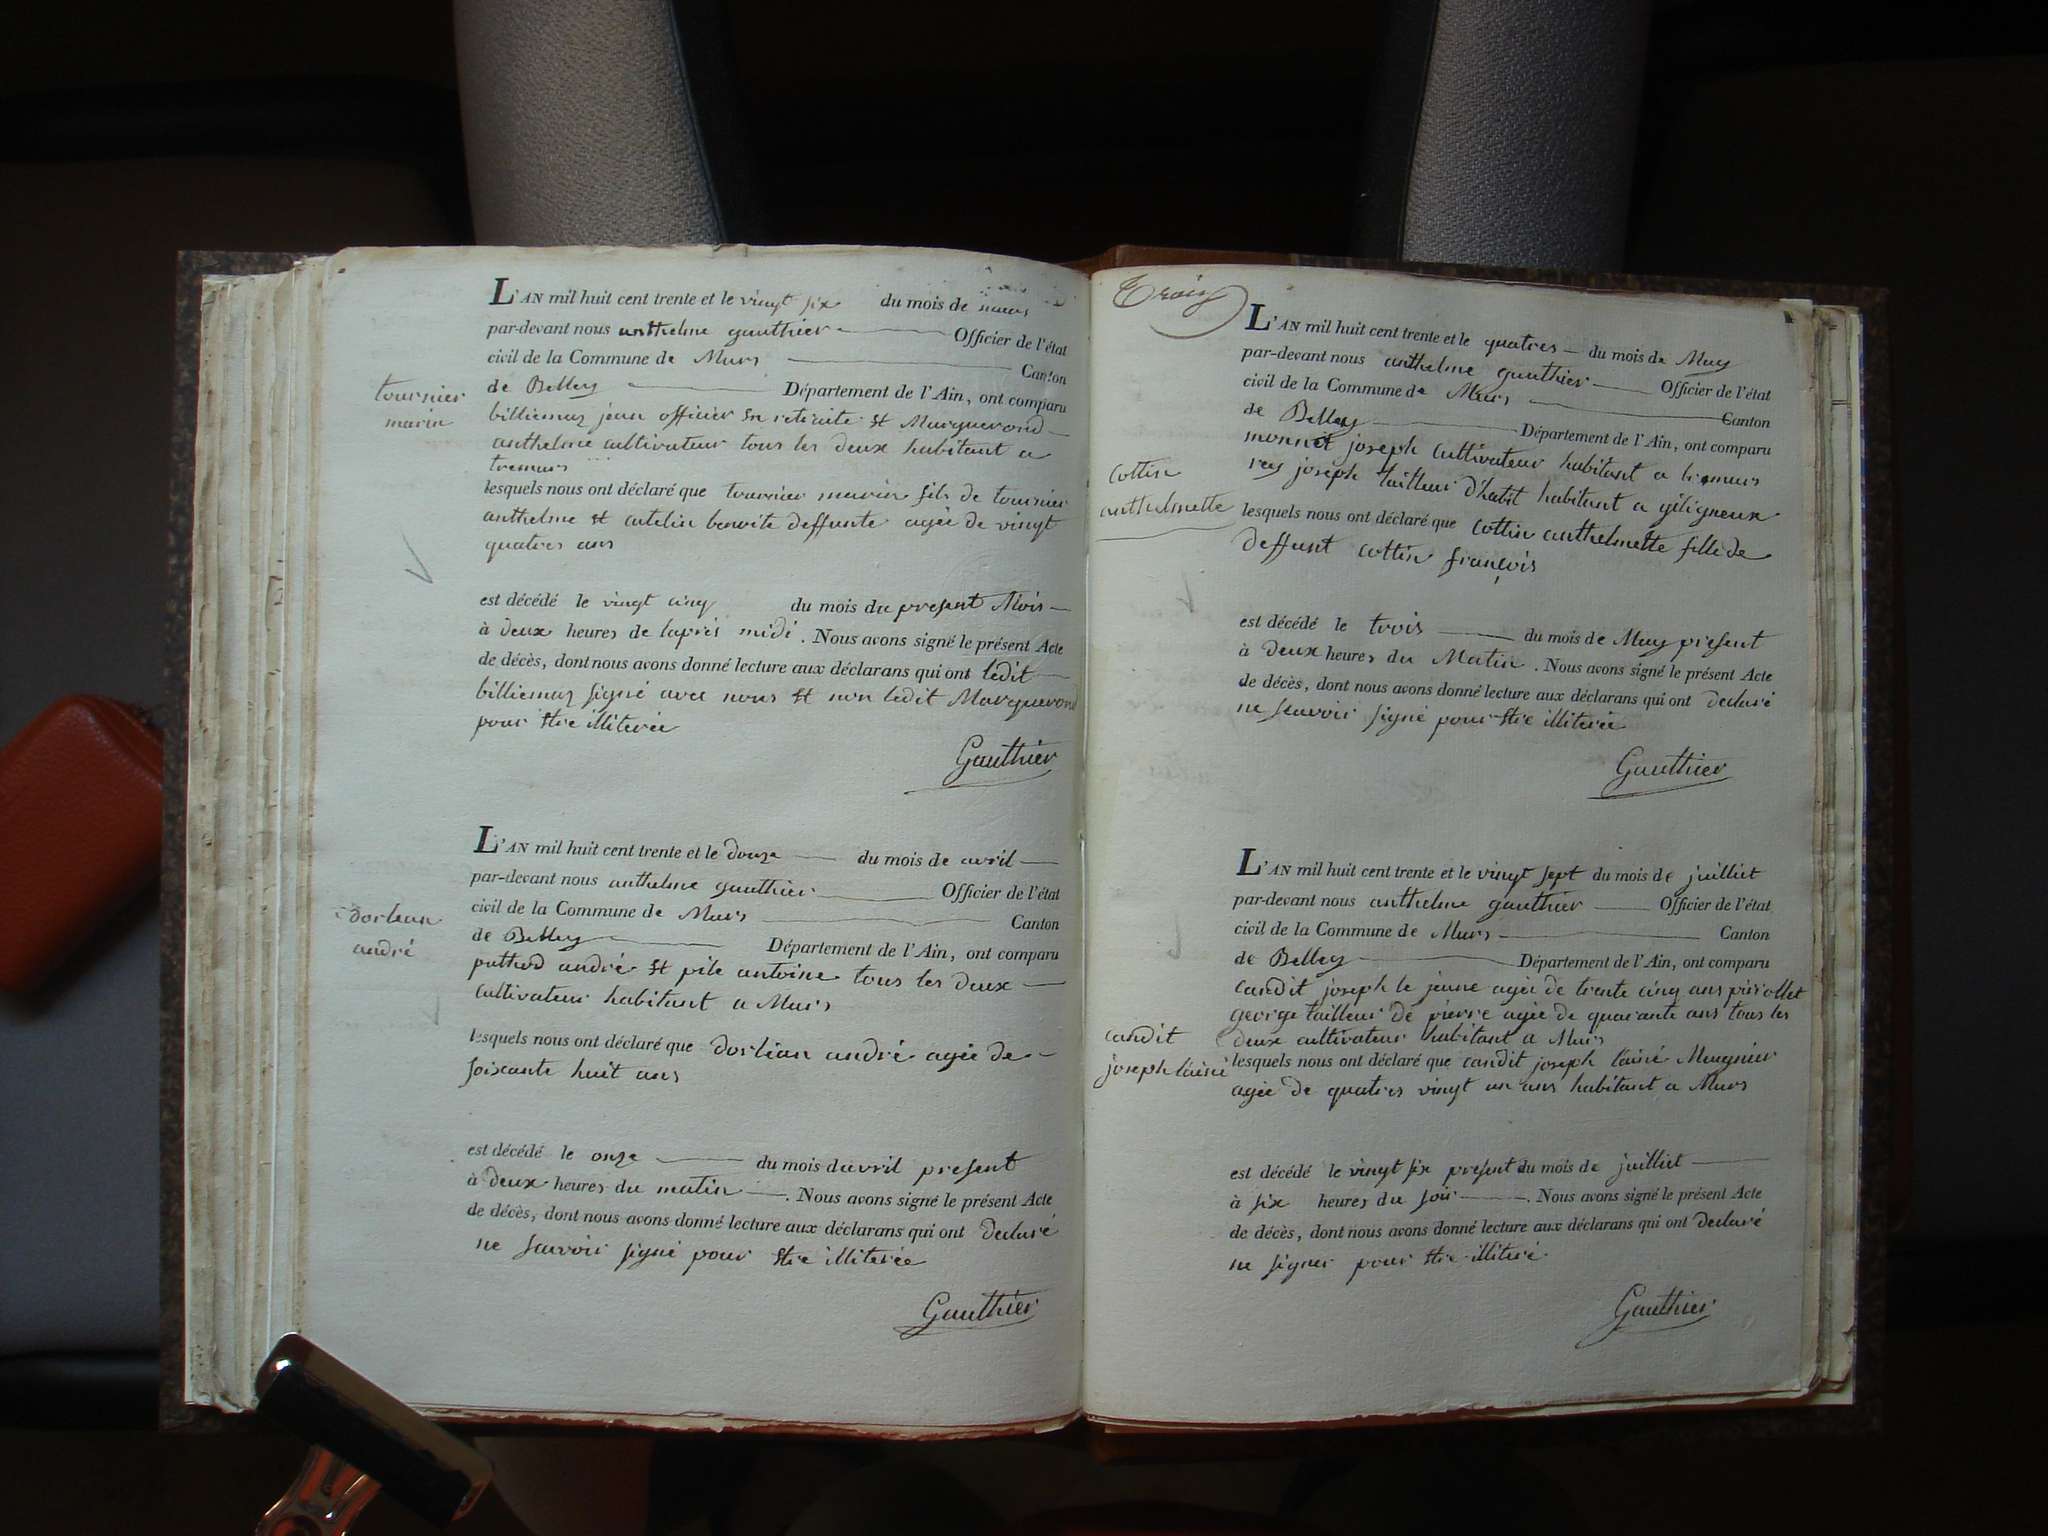 L'AN mil huit cent trente et le vingt six du mois de mars
par-devant nous anthelme gauthier Officier de l'état
civil de la Commune de Murs Canton
de Belley Département de l'Ain, ont comparu
tournier
marin
billiemaz jean officier en retraite et Marquerond
anthelme cultivateur tous les deux habitant a
tremurs
lesquels nous ont déclaré que tournier marin fils de tournier
anthelme et catelin benoite deffunte agée de vingt
quatres ans
est décédé le vingt cinq du mois du present Mois
à deux heures de lapres midi. Nous avons signé le présent Acte
de décès, dont nous avons donné lecture aux déclarans qui ont ledit
billiemaz signé avec nous et non ledit Marquerond
pour etre illiterée
Gauthier
L'AN mil huit cent trente et le douze du mois de avril
par-devant nous anthelme gauthier Officier de l'état
civil de la Commune de Murs Canton
de Belley Département de l'Ain, ont comparu
dorlian
andré
puthod andré et pile antoine tous les deux
cultivateur habitant a Murs
lesquels nous ont déclaré que dorlian andré agée de
soixante huit ans
est décédé le onze du mois davril present
à deux heures du matin. Nous avons signé le présent Acte
de décès, dont nous avons donné lecture aux déclarans qui ont declaré
ne scavoir signé pour etre illiterée
Gauthier
Trois
L'AN mil huit cent trente et le quatres du mois de May
par-devant nous anthelme gauthier Officier de l'état
civil de la Commune de Murs Canton
de Belley Département de l'Ain, ont comparu
monnet joseph cultivateur habitant a tremurs
rey joseph tailleur d'habit habitant a giligneux
cottin
anthelmette
lesquels nous ont déclaré que cottin anthelmette fille de
deffunt cottin françois
est décédé le trois du mois de May present
à deux heures du Matin. Nous avons signé le présent Acte
de décès, dont nous avons donné lecture aux déclarans qui ont declaré
ne scavoir signé pour etre illiterée
Gauthier
L'AN mil huit cent trente et le vingt sept du mois de juilliet
par-devant nous anthelme gauthier Officier de l'état
civil de la Commune de Murs Canton
de Belley Département de l'Ain, ont comparu
candit joseph le jeune agée de trente cinq ans piriollet
george tailleur de pierre agée de quarante ans tous les
deux cultivateur habitant a Murs
candit
joseph lainé
lesquels nous ont déclaré que candit joseph lainé Meugnier
agée de quatres vingt un ans habitant a Murs
est décédé le vingt six present du mois de juilliet
à six heures du soir. Nous avons signé le présent Acte
de décès, dont nous avons donné lecture aux déclarans qui ont declaré
ne signer pour etre illiteré
Gauthier